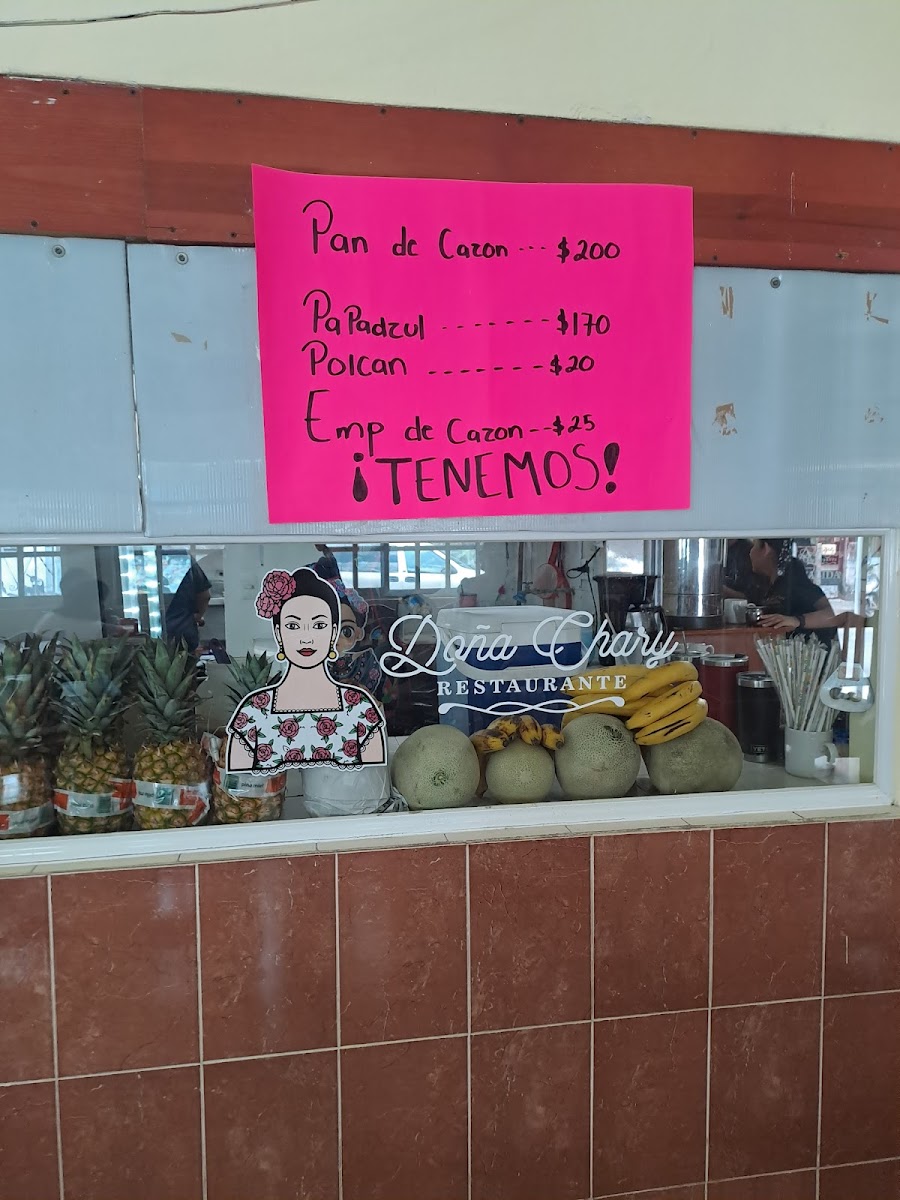 Pan de Cazon --- $200
PaPadzul ------- $170
Polcan ------- $20
Emp de Cazon -- $25
¡TENEMOS!
Doña Chary
RESTAURANTE
YETI